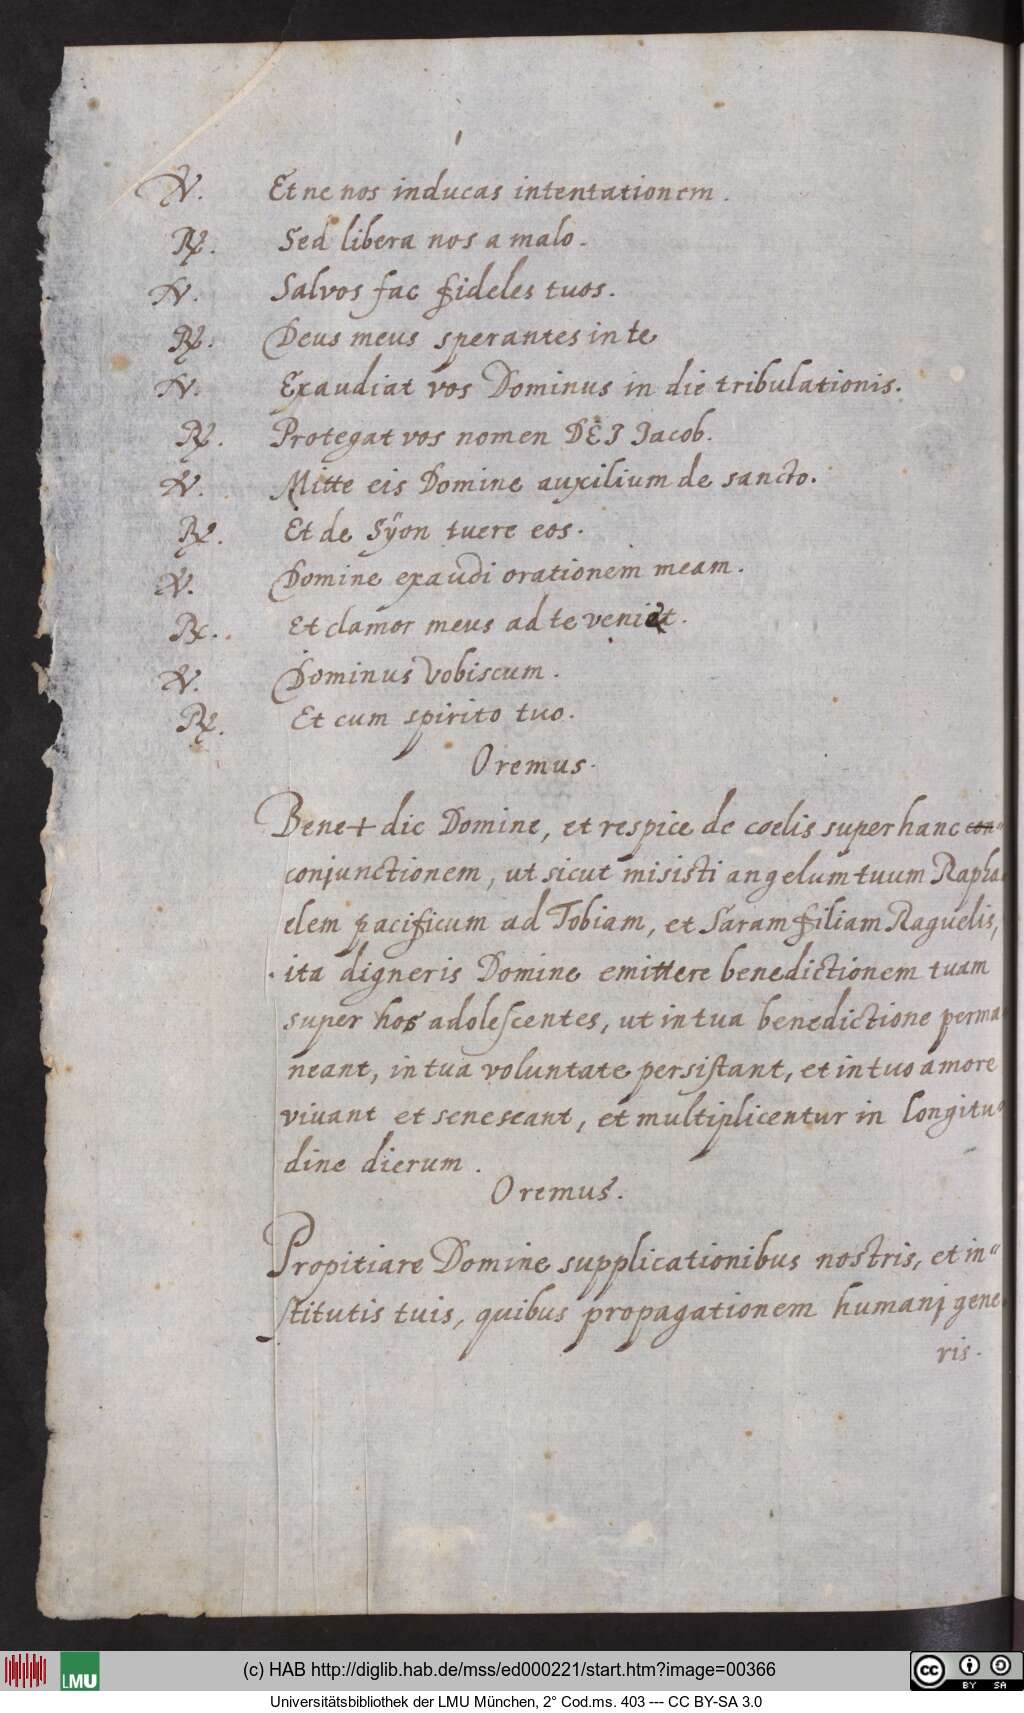 ℣. Et ne nos inducas intentationem.
℟. Sed libera nos a malo.
℣. Salvos fac fideles tuos.
℟. Deus meus sperantes in te
℣. Exaudiat vos Dominus in die tribulationis.
℟. Protegat vos nomen DEI Jacob.
℣. Mitte eis Domine auxilium de sancto.
℟. Et de Sÿon tuere eos.
℣. Domine exaudi orationem meam.
℟. Et clamor meus ad te veniat.
℣. Dominus Vobiscum.
℟. Et cum spirito tuo.
Oremus.
Bene + dic Domine, et respice de coelis super hanc con-
conjunctionem, ut sicut misisti angelum tuum Rapha
elem pacificum ad Tobiam, et Saram filiam Raguelis,
ita digneris Domine emittere benedictionem tuam
super hos adolescentes, ut in tua benedictione perma-
neant, in tua voluntate persistant, et in tuo amore
vivant et seneseant, et multiplicentur in longitu-
dine dierum.
Oremus.
Propitiare Domine supplicationibus nostris, et in-
stitutis tuis, quibus propagationem humanj gene
ris.
(c) HAB http://diglib.hab.de/mss/ed000221/start.htm?image=00366
LMU
cc BY SA
Universitätsbibliothek der LMU München, 2° Cod.ms. 403 --- CC BY-SA 3.0